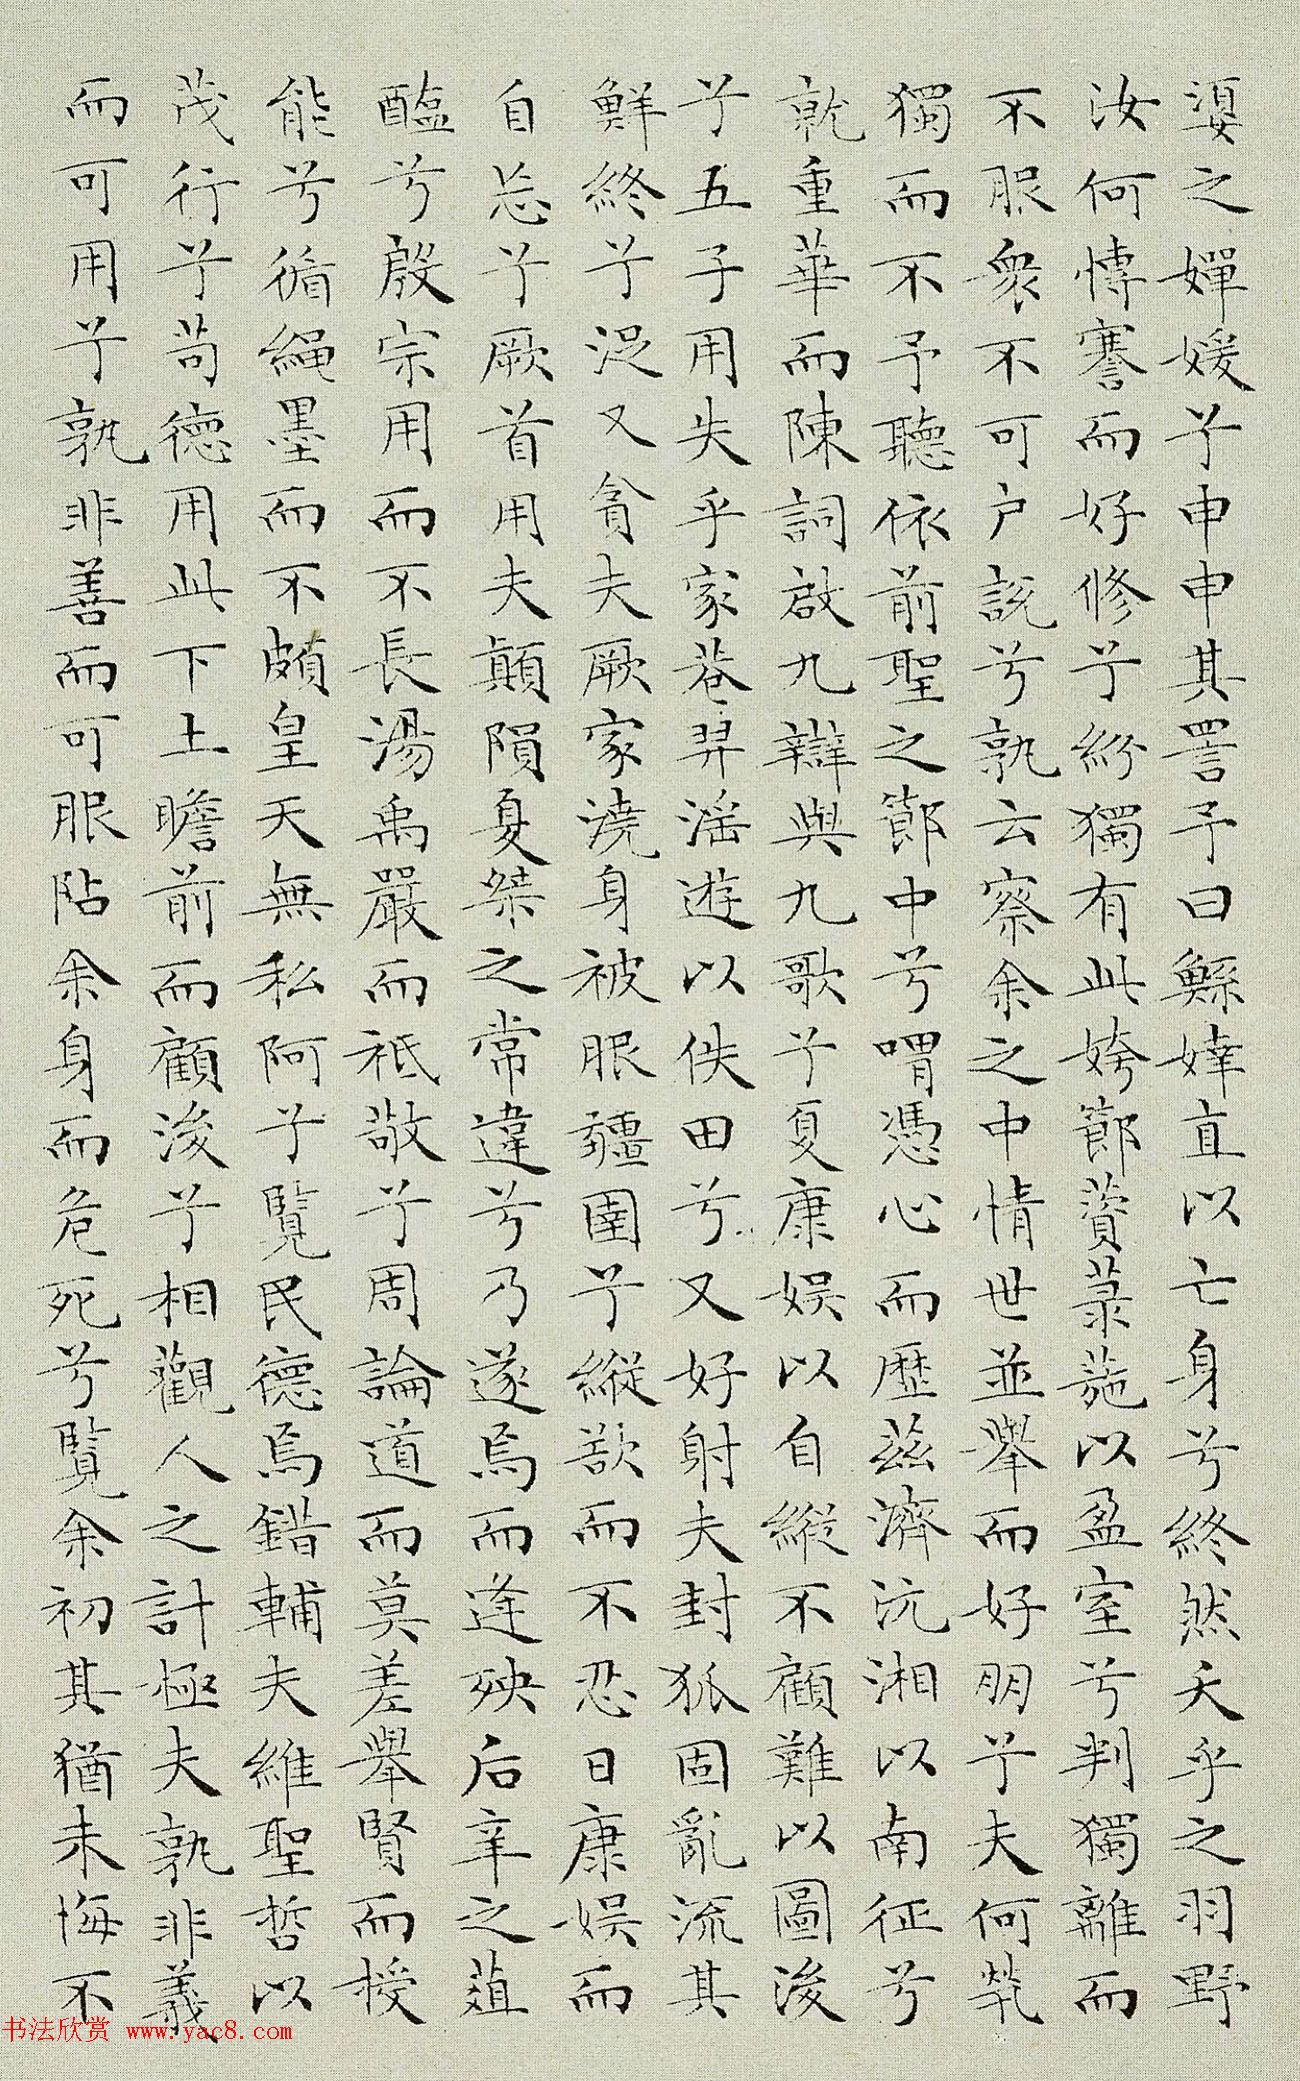 媭之嬋媛兮申申其詈予曰鯀婞直以亡身兮終然夭乎之羽野
汝何博謇而好修兮紛獨有此姱節薋菉葹以盈室兮判獨離而
不服眾不可户說兮孰云察余之中情世並舉而好朋兮夫何茕
獨而不予聽依前聖之節中兮喟憑心而歷茲濟沅湘以南征兮
就重華而陳詞啟九辯與九歌兮夏康娛以自縱不顧難以圖後
兮五子用失乎家巷羿淫遊以佚田兮又好射夫封狐固亂流其
鮮終兮浞又貪夫厥家澆身被服疆圉兮縱欲而不忍日康娛而
自忘兮厥首用夫顛隕夏桀之常違兮乃遂焉而逢殃后辛之菹
醢兮殷宗用而不長湯禹嚴而祗敬兮周論道而莫差舉賢而授
能兮循繩墨而不頗皇天無私阿兮覽民德焉錯輔夫維聖哲以
茂行兮苟德用此下土瞻前而顧後兮相觀人之計極夫孰非義
而可用兮孰非善而可服阽余身而危死兮覽余初其猶未悔不
书法欣赏 www.yac8.com